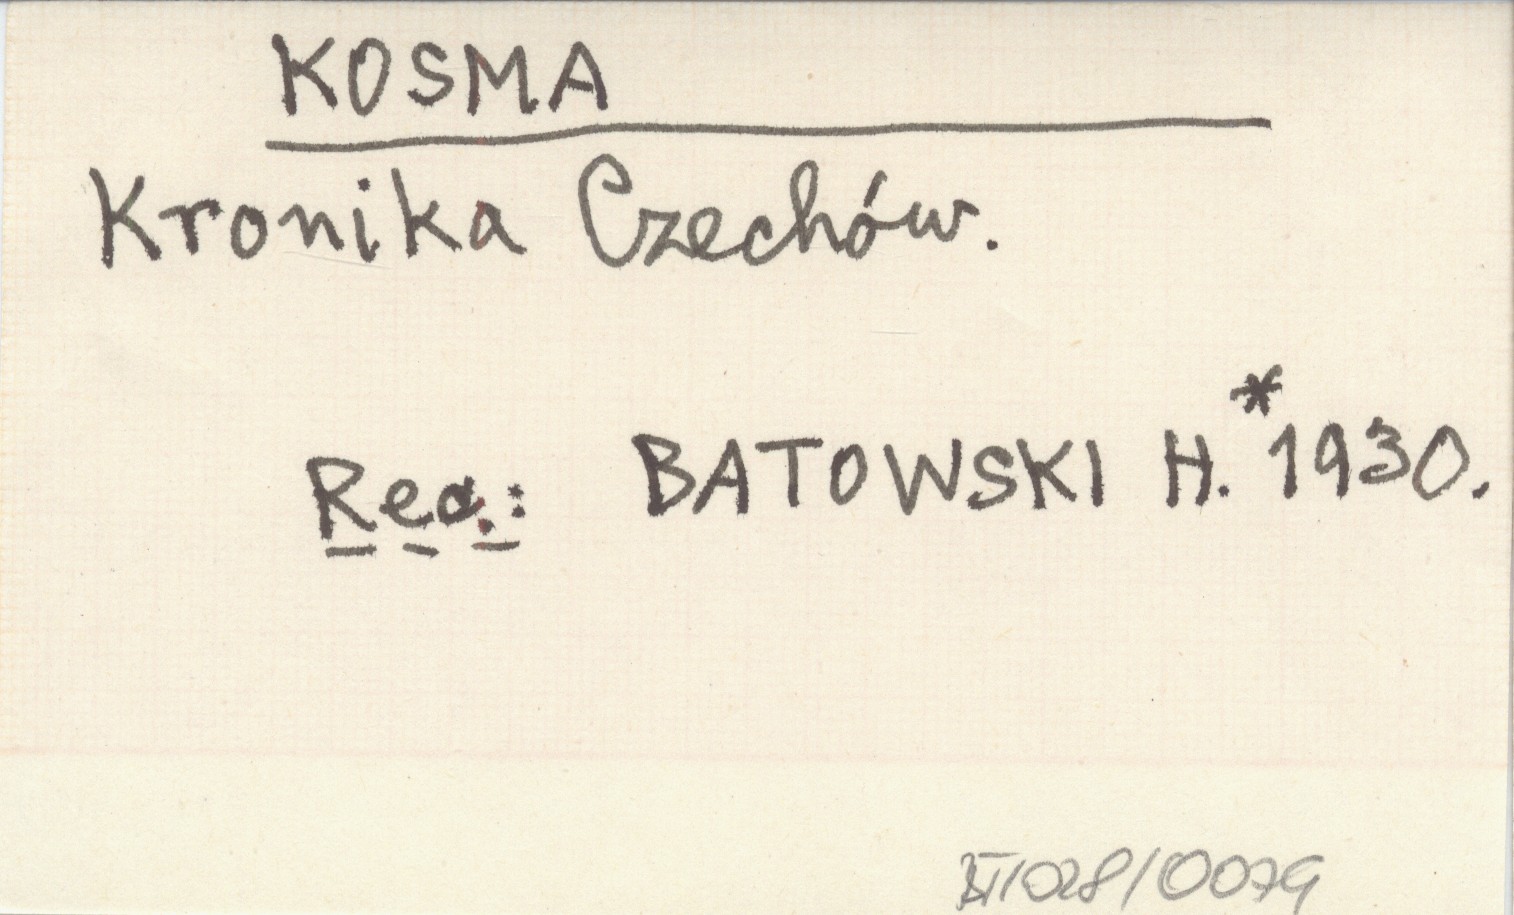 KOSMA
Kronika Czechów.
*
Rec.: BATOWSKI H. 1930.
/028/0079